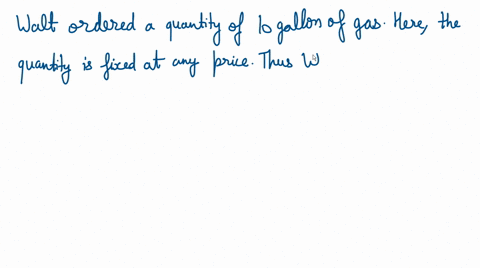 Walt ordered a quantity of 10 gallon of gas. Here, the
quantity is fixed at any price. Thus W